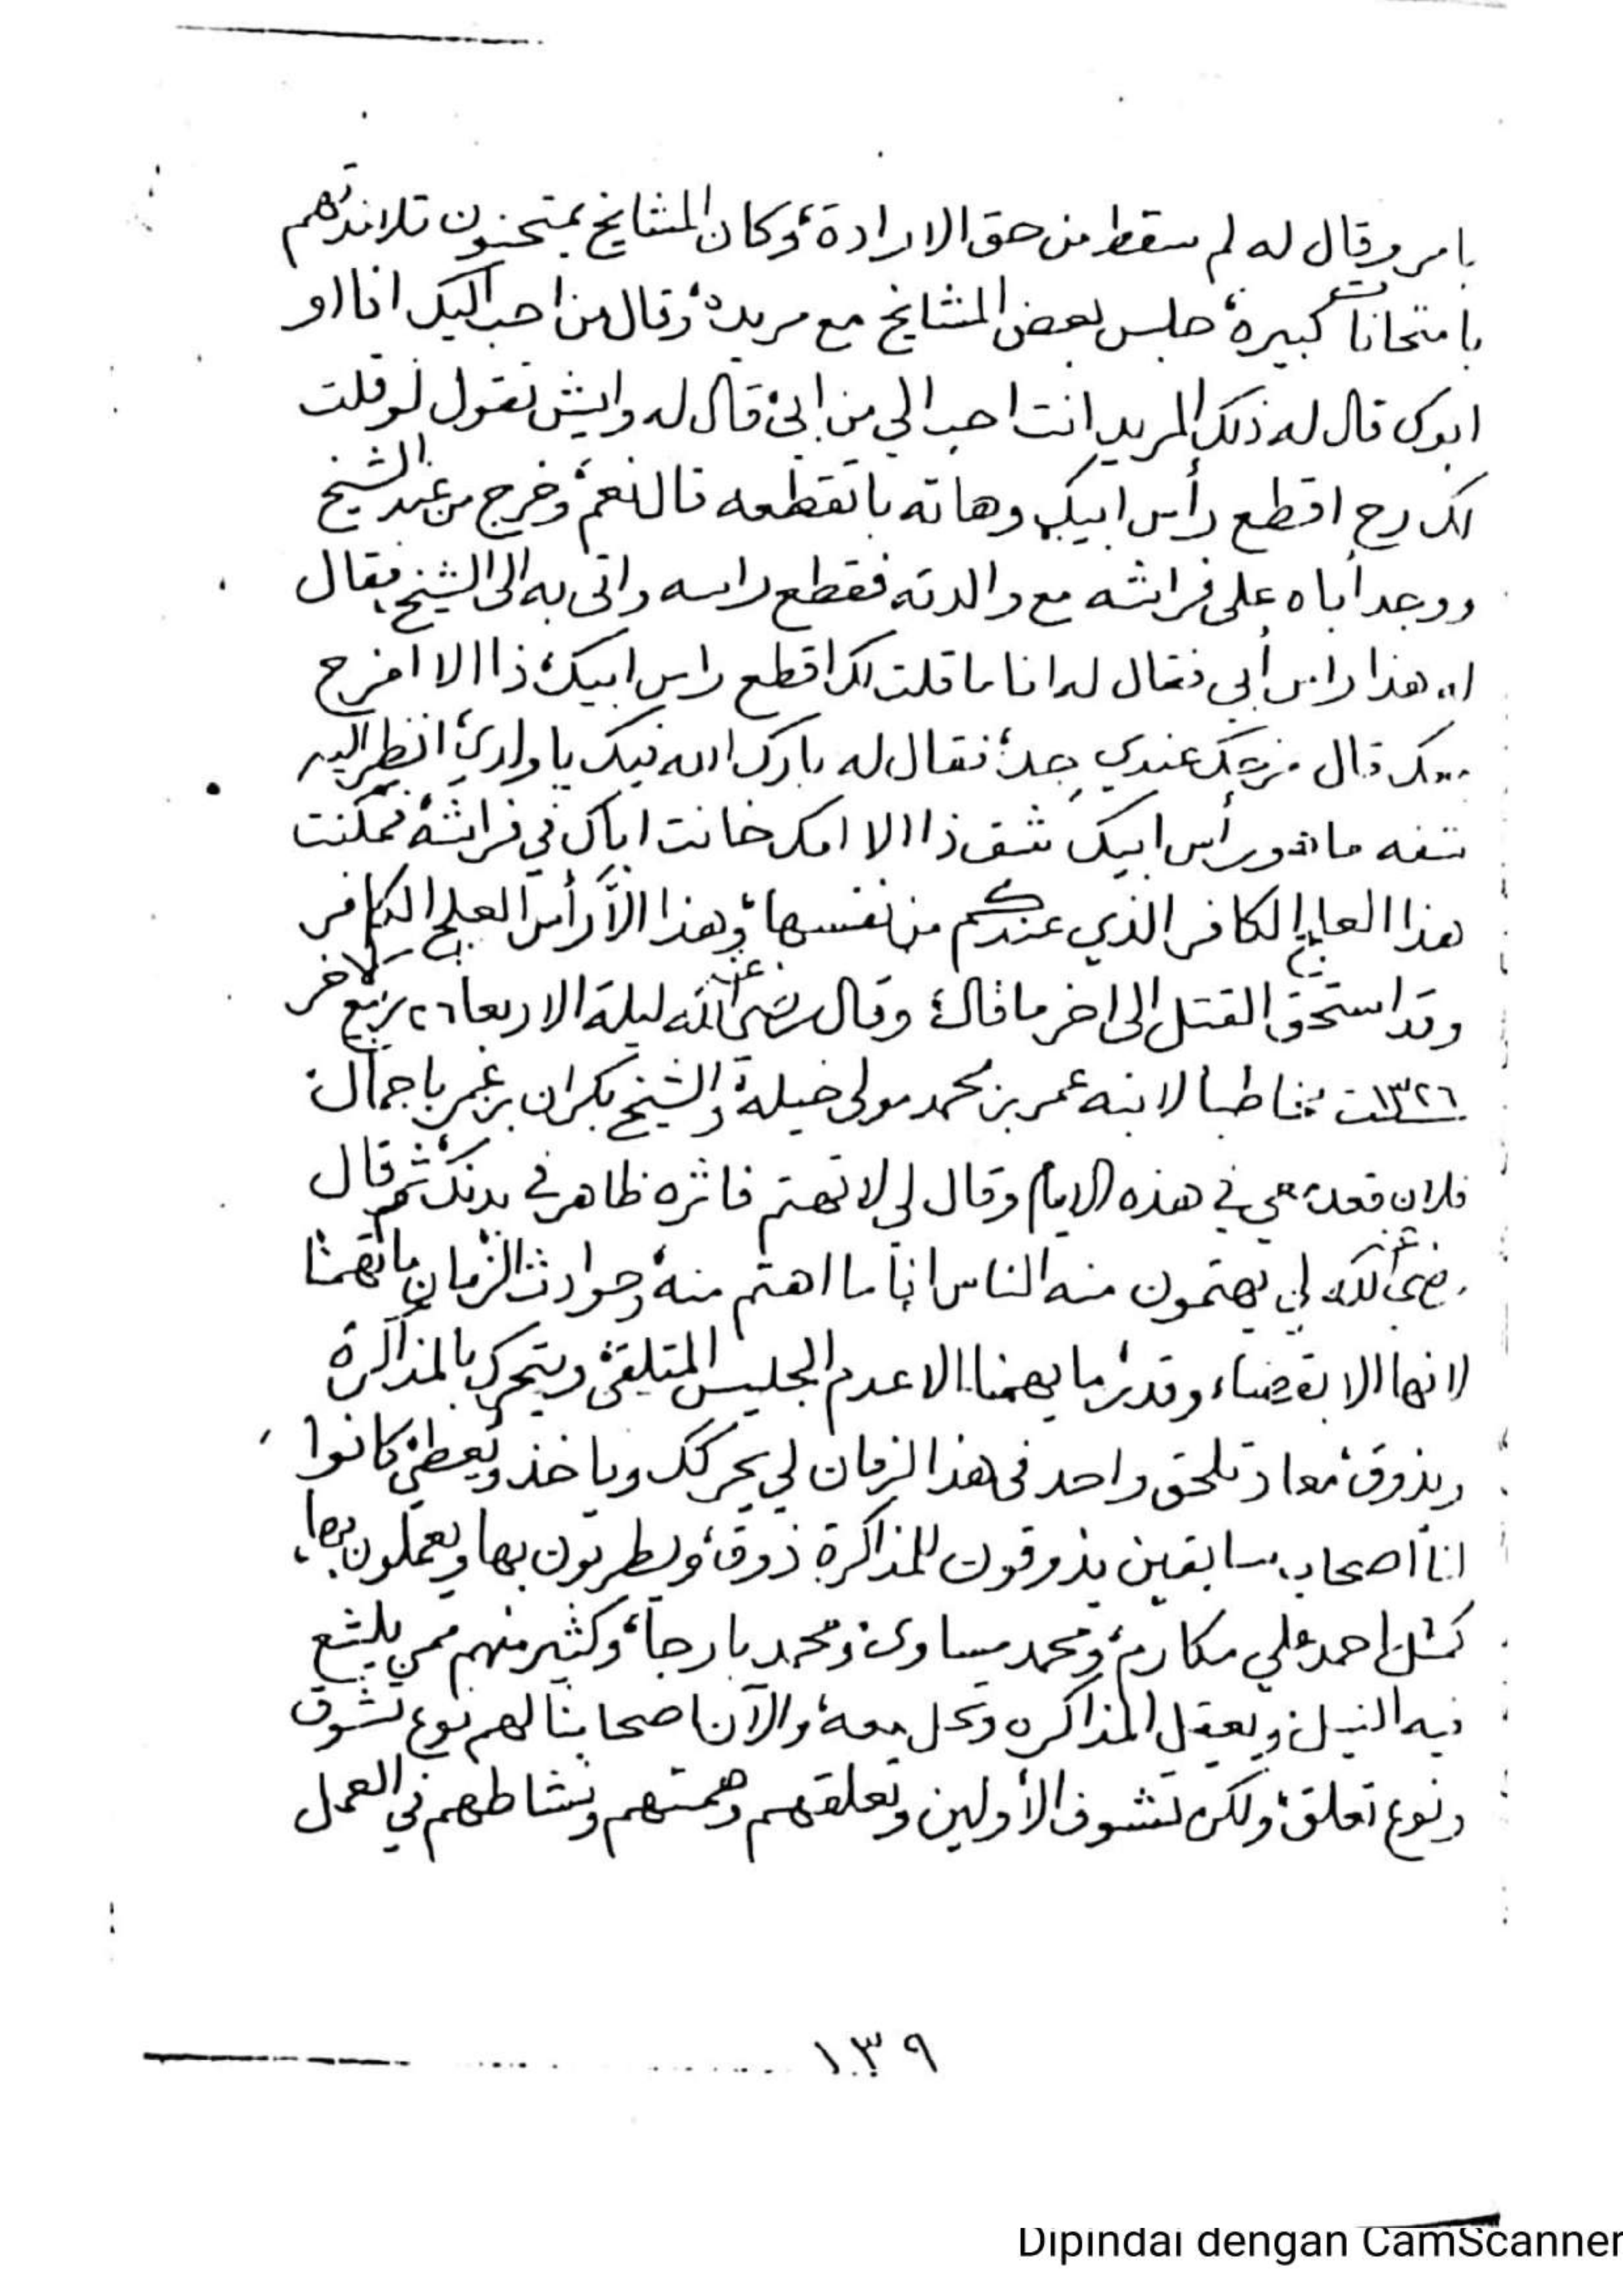 بامر وقال له لم سقط من حق الارادة، وكان المشايخ يمتحنون تلاندتهم
بامتحانات كبيرة، جلس بعض المشايخ مع مريده، وقال من احب اليك انا او
ابوك قال له ذلك المريد انت احب الي من ابي، قال له وايش تقول لو قلت
لك رح اقطع رأس ابيك وهاته باتقطعه قال نعم، وخرج من عند الشيخ
ووجد أباه على فراشه مع والدته فقطع راسه واتى به الى الشيخ فقال
هذا راس أبي فقال له انا ما قلت لك اقطع راس ابيك، ذا الا امزح
معك قال مزحك عندي جد، فقال له بارك الله فيك يا ولدي، انظر اليه
شفه ما هو رأس ابيك شف ذا الا امك خانت اباك في فراشه، فمكنت
هذا العلج الكافر الذي عندكم من نفسها، وهذا الا رأس العلج الكافر
وقد استحق القتل الى اخر ما قال، وقال رضي الله عنه ليلة الاربعا ٢٦ ربيع الاخر
سنة ١٣٢٦ مخاطبا لابنه عمر بن محمد مولى خيلة، والشيخ بكران بن عمر باجمال
فلان قعد معي في هذه الايام وقال لي لا تهتم فاثره ظاهر في بدنك، ثم قال
رضي الله عنه لي يهتمون منه الناس انا ما اهتم منه، وحوادث الزمان ما تهمنا
لانها الا بقضاء وقدر، ما يهمنا الا عدم الجليس المتلقي، ويتحرك بالمذاكرة
ويذوق، معاد تلحق واحد في هذا الزمان لي يحركك وياخذ ويعطي، كانوا
انا اصحاب سابقين يذوقون للمذاكرة ذوق، ويطربون بها ويعملون بها،
كمثل احمد علي مكارم، ومحمد مساوى، ومحمد بارجا، وكثير منهم ممن يلتع
فيه النيل، ويعقل المذاكره وتحل معه، والآن اصحابنا لهم نوع تشوق
ونوع تعلق، ولكن تشوف الأولين وتعلقهم وهمتهم ونشاطهم في العمل
١٣٩
Dipindai dengan CamScanner